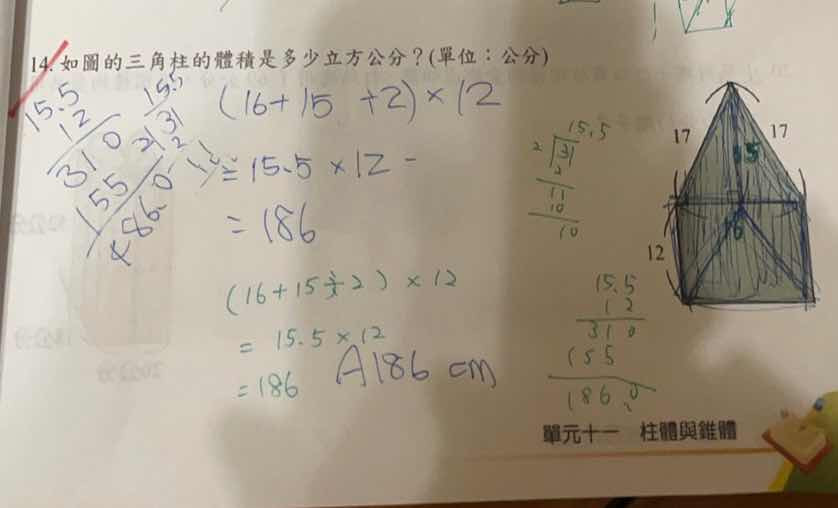 14. 如圖的三角柱的體積是多少立方公分？(單位：公分)
15.5
12
310
155
186.0
15.5
2
31
(16+15 +2)×12
= 15.5 × 12 -
= 186
(16+15÷2) × 12
= 15.5 × 12
= 186
A186 cm
15.5
2
31
2
11
10
10
15.5
12
310
155
186.0
17
17
15
16
12
單元十一 柱體與錐體